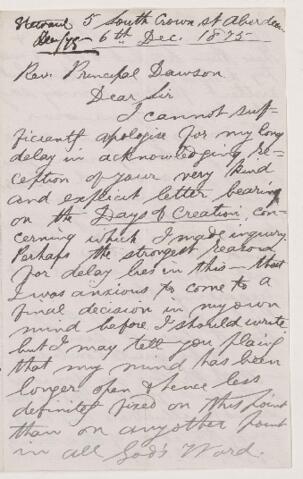 5 South Crown St Aberdeen
6th Dec. 1875
Rev. Principal Dawson
Dear Sir
I cannot suf-
ficiently apologise for my long
delay in acknowledging re-
ception of your very kind
and explicit letter bearing
on the Days of Creation, con-
cerning which I made inquiry
Perhaps the strongest reason
for delay lies in this – that
I was anxious to come to a
final decision in my own
mind before I should write
but I may tell you plainly
that my mind has been
longer open & hence less
definitely fixed on this point
than on any other point
in all God's Word.